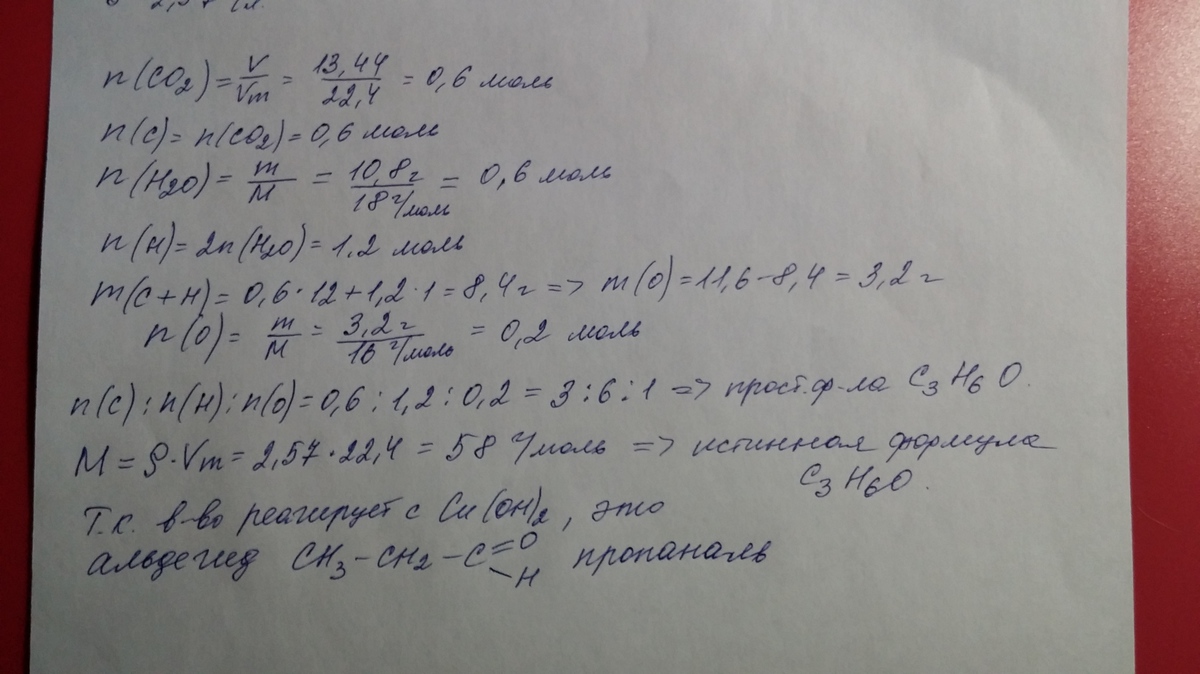 n(CO₂) = V/Vm = 13,44/22,4 = 0,6 моль
n(C) = n(CO₂) = 0,6 моль
n(H₂O) = m/M = 10,8г/18 г/моль = 0,6 моль
n(H) = 2n(H₂O) = 1,2 моль
m(C+H) = 0,6·12+1,2·1 = 8,4г => m(O) = 11,6-8,4 = 3,2г
n(O) = m/M = 3,2г/16 г/моль = 0,2 моль
n(C):n(H):n(O) = 0,6:1,2:0,2 = 3:6:1 => прост.ф-ла C₃H₆O.
M = ρ·Vm = 2,57·22,4 = 58 г/моль => истинная формула
C₃H₆O.
Т.к. в-во реагирует с Cu(OH)₂, это
альдегид CH₃-CH₂-C=O -H пропаналь